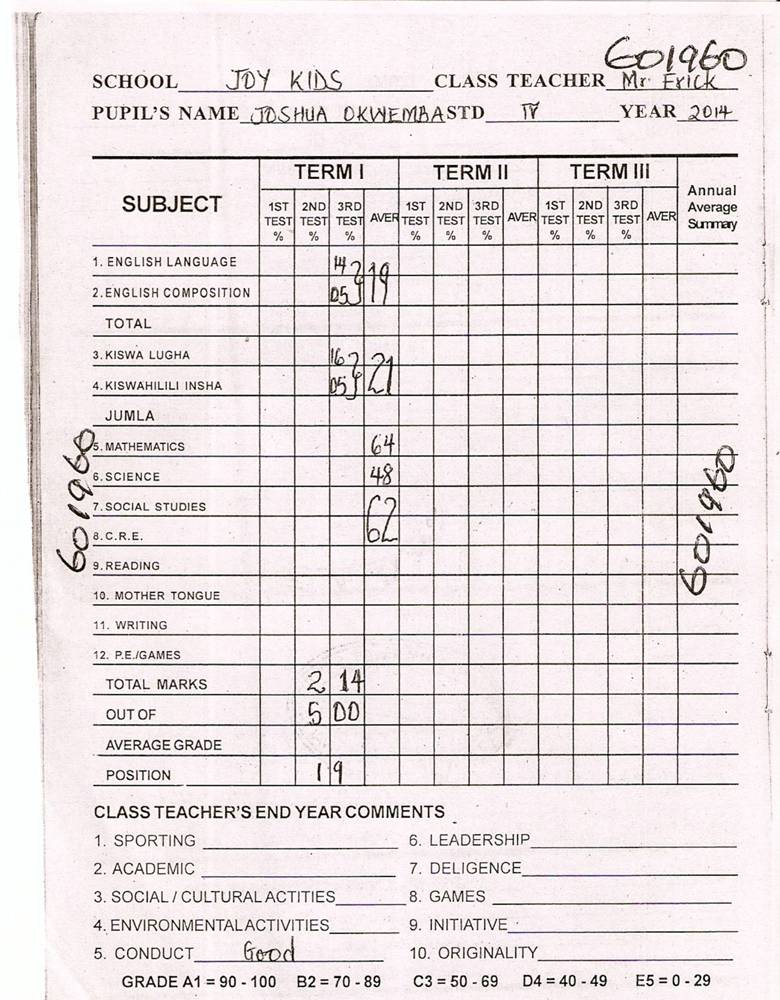 601960
SCHOOL JOY KIDS CLASS TEACHER Mr Erick
PUPIL'S NAME JOSHUA OKWEMBA STD IV YEAR 2014
SUBJECT TERM I TERM II TERM III Annual Average Summary
1ST TEST % 2ND TEST % 3RD TEST % AVER 1ST TEST % 2ND TEST % 3RD TEST % AVER 1ST TEST % 2ND TEST % 3RD TEST % AVER
1. ENGLISH LANGUAGE 14
2. ENGLISH COMPOSITION 05 19
TOTAL
3. KISWA LUGHA 16
4. KISWAHILILI INSHA 05 21
JUMLA
5. MATHEMATICS 64
6. SCIENCE 48
7. SOCIAL STUDIES 62
8. C.R.E.
9. READING
10. MOTHER TONGUE
11. WRITING
12. P.E./GAMES
TOTAL MARKS 2 14
OUT OF 5 00
AVERAGE GRADE
POSITION 19
601960
601960
CLASS TEACHER'S END YEAR COMMENTS
1. SPORTING 6. LEADERSHIP
2. ACADEMIC 7. DELIGENCE
3. SOCIAL / CULTURAL ACTITIES 8. GAMES
4. ENVIRONMENTAL ACTIVITIES 9. INITIATIVE
5. CONDUCT Good 10. ORIGINALITY
GRADE A1 = 90 - 100 B2 = 70 - 89 C3 = 50 - 69 D4 = 40 - 49 E5 = 0 - 29